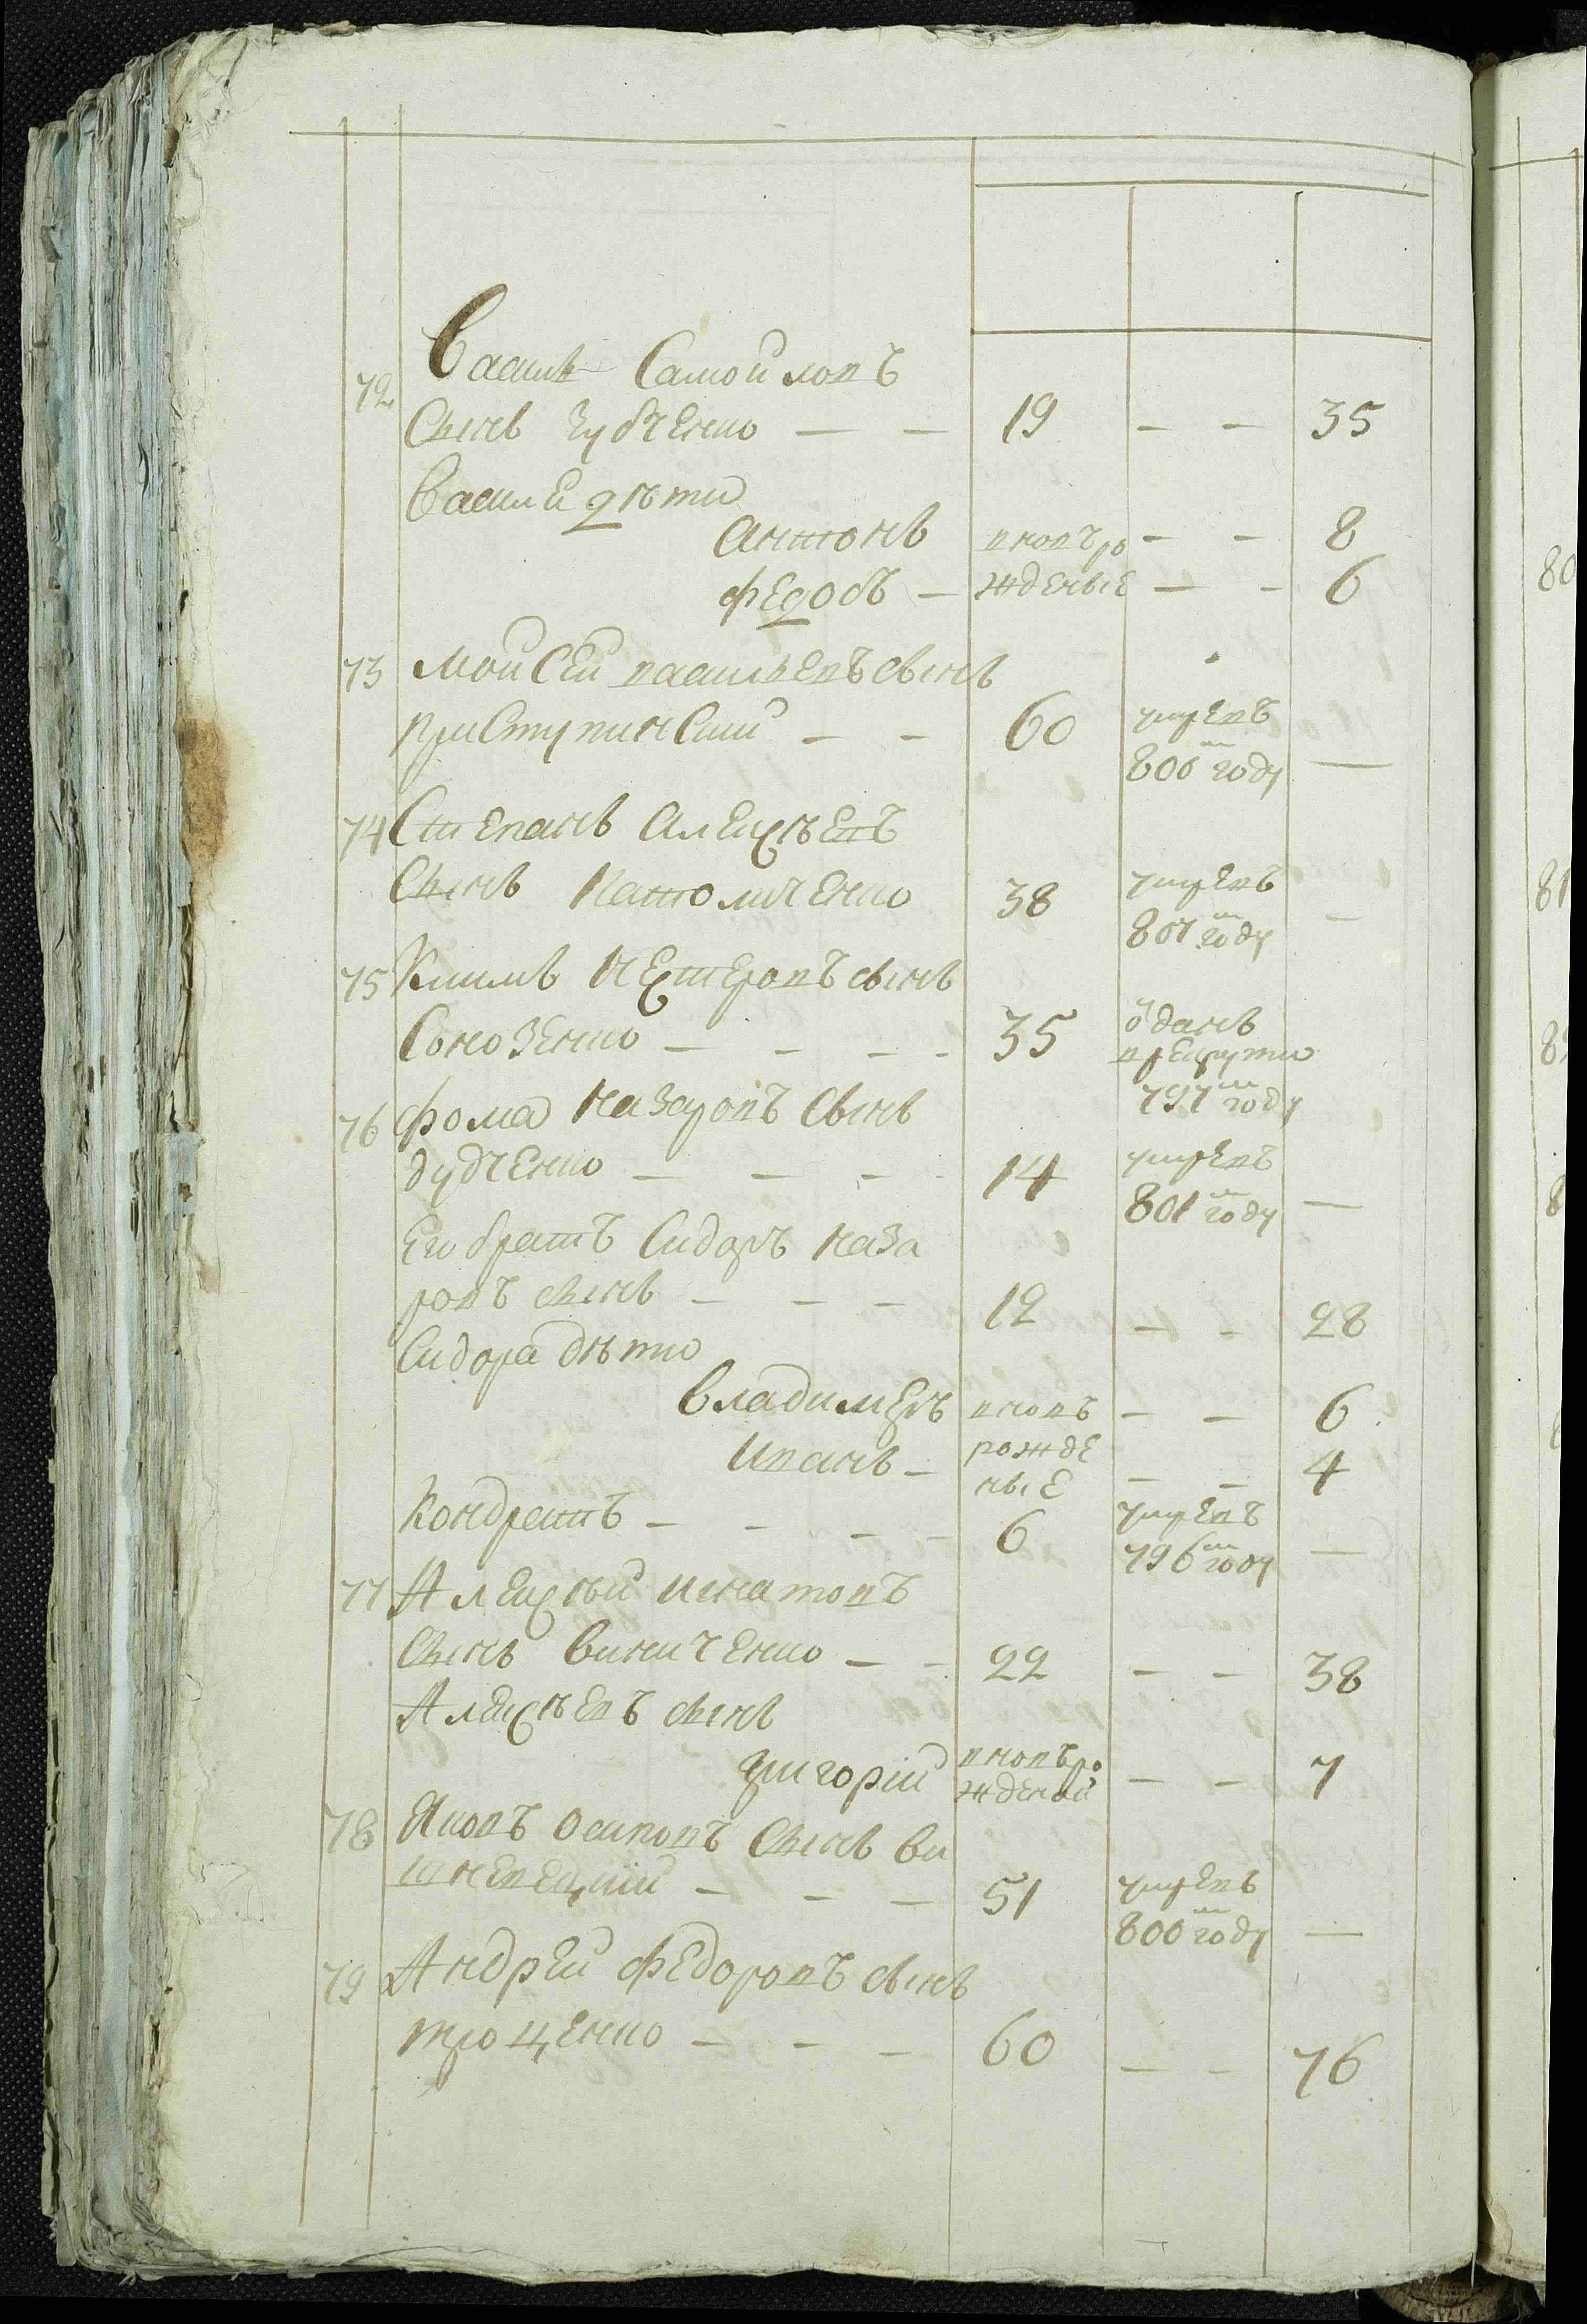 72 Василь Самойловъ
Сынъ Зубченко — — 19 — — 35
Василя дѣти
Антонъ вновъро — — 8
Федоръ — жденые — — 6
73 Мойсей васильевъ сынъ
Приступинский — — 60 умревъ
800 го году —
74 Степанъ Алексѣевъ
Сынъ Натоличенко 38 умревъ
801 го году —
75 Климъ Нестеровъ сынъ
Сонозенко — — — — 35 одданъ
врекруты
797 го году
76 Фома Назаровъ Сынъ
дудченко — — — 14 умревъ
801 го году —
Его братъ Сидоръ Наза
ровъ сынъ — — — 12 — — 28
Сидора дѣти
Владимеръ вновъ — — 6
Иванъ — рожде — — 4
ные
Кондратъ — — — — 6 умревъ
796 го году —
77 Алексѣй игнатовъ
Сынъ Виниченко — — 22 — — 38
Алексѣевъ сынъ
григорій вновъро
жденой — — 7
78 Яковъ Осиповъ Сынъ Ви
шневецкій — — — 51 умревъ
800 го году —
79 Андрей Федоровъ сынъ
троценко — — — 60 — — 76
80
81